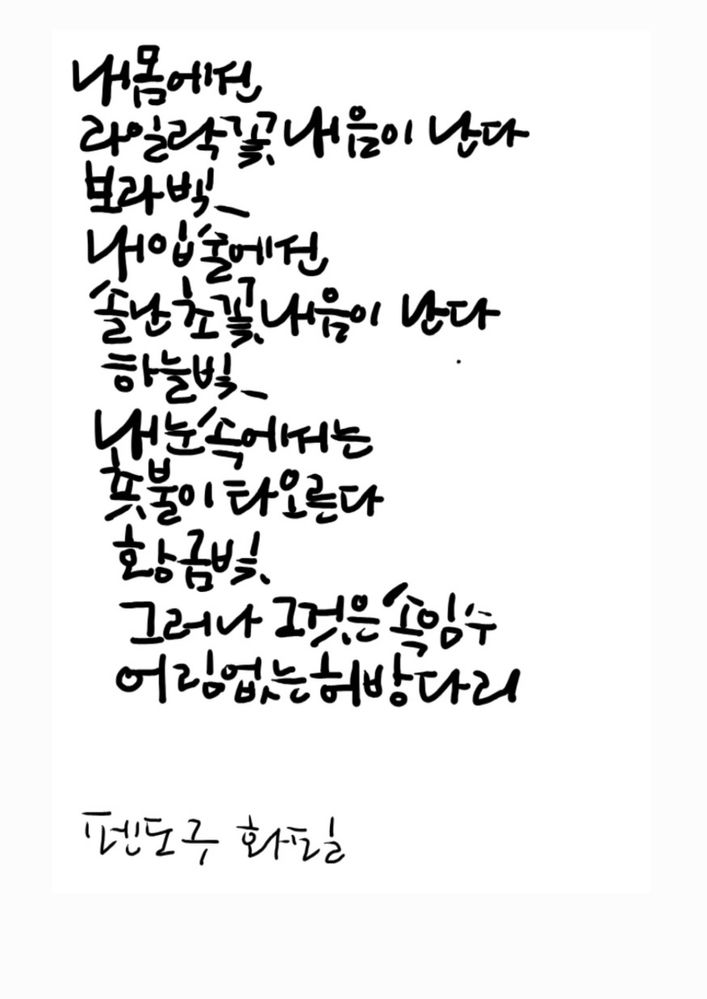 내 몸에선
라일락꽃 내음이 난다
보라빛_
내 입술에선
솔난초꽃 내음이 난다
하늘빛_
내 눈 속에서는
횃불이 타오른다
황금빛
그러나 그것은 속임수
어림없는 허방다리
펜도구 화필